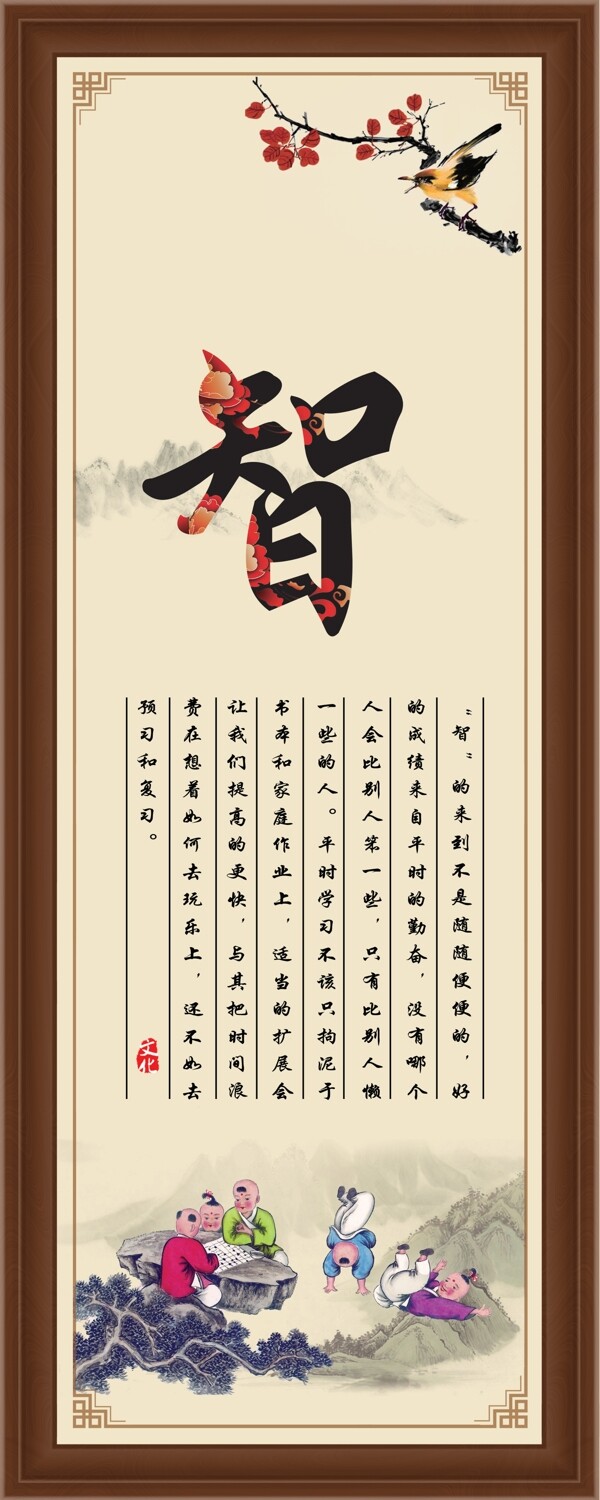 智
“智”的来到不是随随便便的，好
的成绩来自平时的勤奋，没有哪个
人会比别人笨一些，只有比别人懒
一些的人。平时学习不该只拘泥于
书本和家庭作业上，适当的扩展会
让我们提高的更快，与其把时间浪
费在想着如何去玩乐上，还不如去
预习和复习。
文化